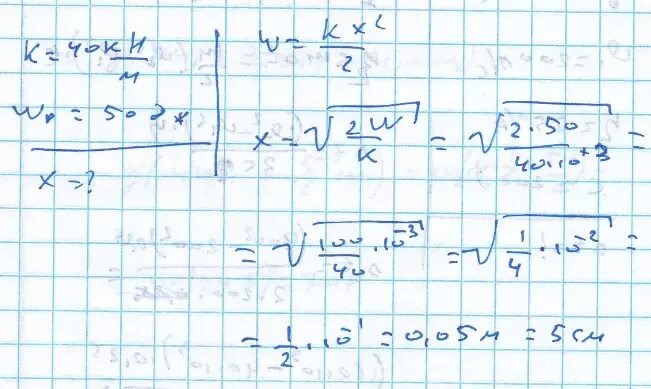 K = 40 кН/м
Wp = 50 Дж
x = ?
W = Kx²/2
x = √(2W/K) = √(2·50/40·10⁺³) =
= √(100/40 · 10⁻³) = √(1/4 · 10⁻²) =
= 1/2 · 10⁻¹ = 0,05 м = 5 см